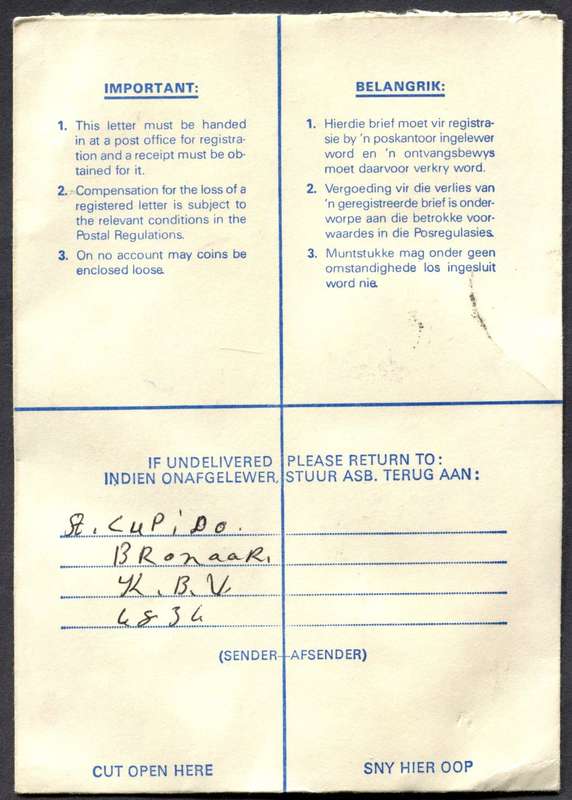 IMPORTANT:
1. This letter must be handed
in at a post office for registra-
tion and a receipt must be ob-
tained for it.
2. Compensation for the loss of a
registered letter is subject to
the relevant conditions in the
Postal Regulations.
3. On no account may coins be
enclosed loose.
BELANGRIK:
1. Hierdie brief moet vir registra-
sie by 'n poskantoor ingelewer
word en 'n ontvangsbewys
moet daarvoor verkry word.
2. Vergoeding vir die verlies van
'n geregistreerde brief is onder-
worpe aan die betrokke voor-
waardes in die Posregulasies.
3. Muntstukke mag onder geen
omstandighede los ingesluit
word nie.
IF UNDELIVERED PLEASE RETURN TO:
INDIEN ONAFGELEWER, STUUR ASB. TERUG AAN:
CUPiDO.
BRONAAR.
K.B.V.
(SENDER–AFSENDER)
CUT OPEN HERE
SNY HIER OOP